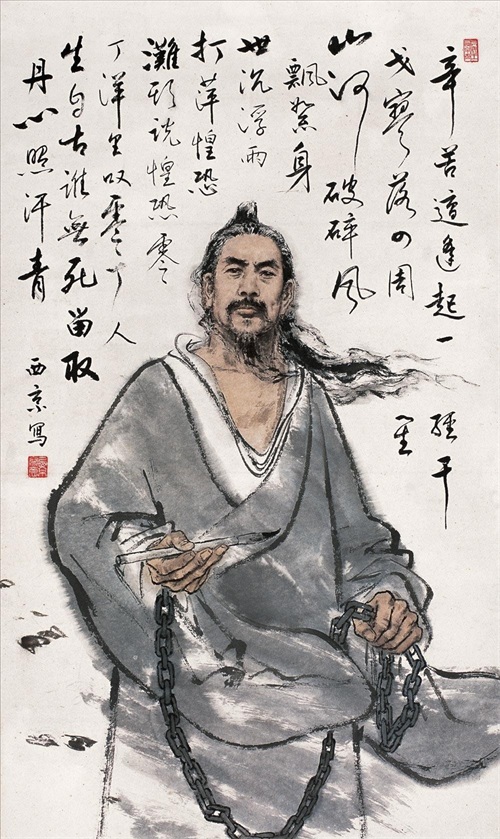 辛苦遭逢起一經干
戈寥落四周星
山河破碎風
飄絮身
世沉浮雨
打萍惶恐
灘頭説惶恐零
丁洋里叹零丁人
生自古誰無死留取
丹心照汗青
西京寫